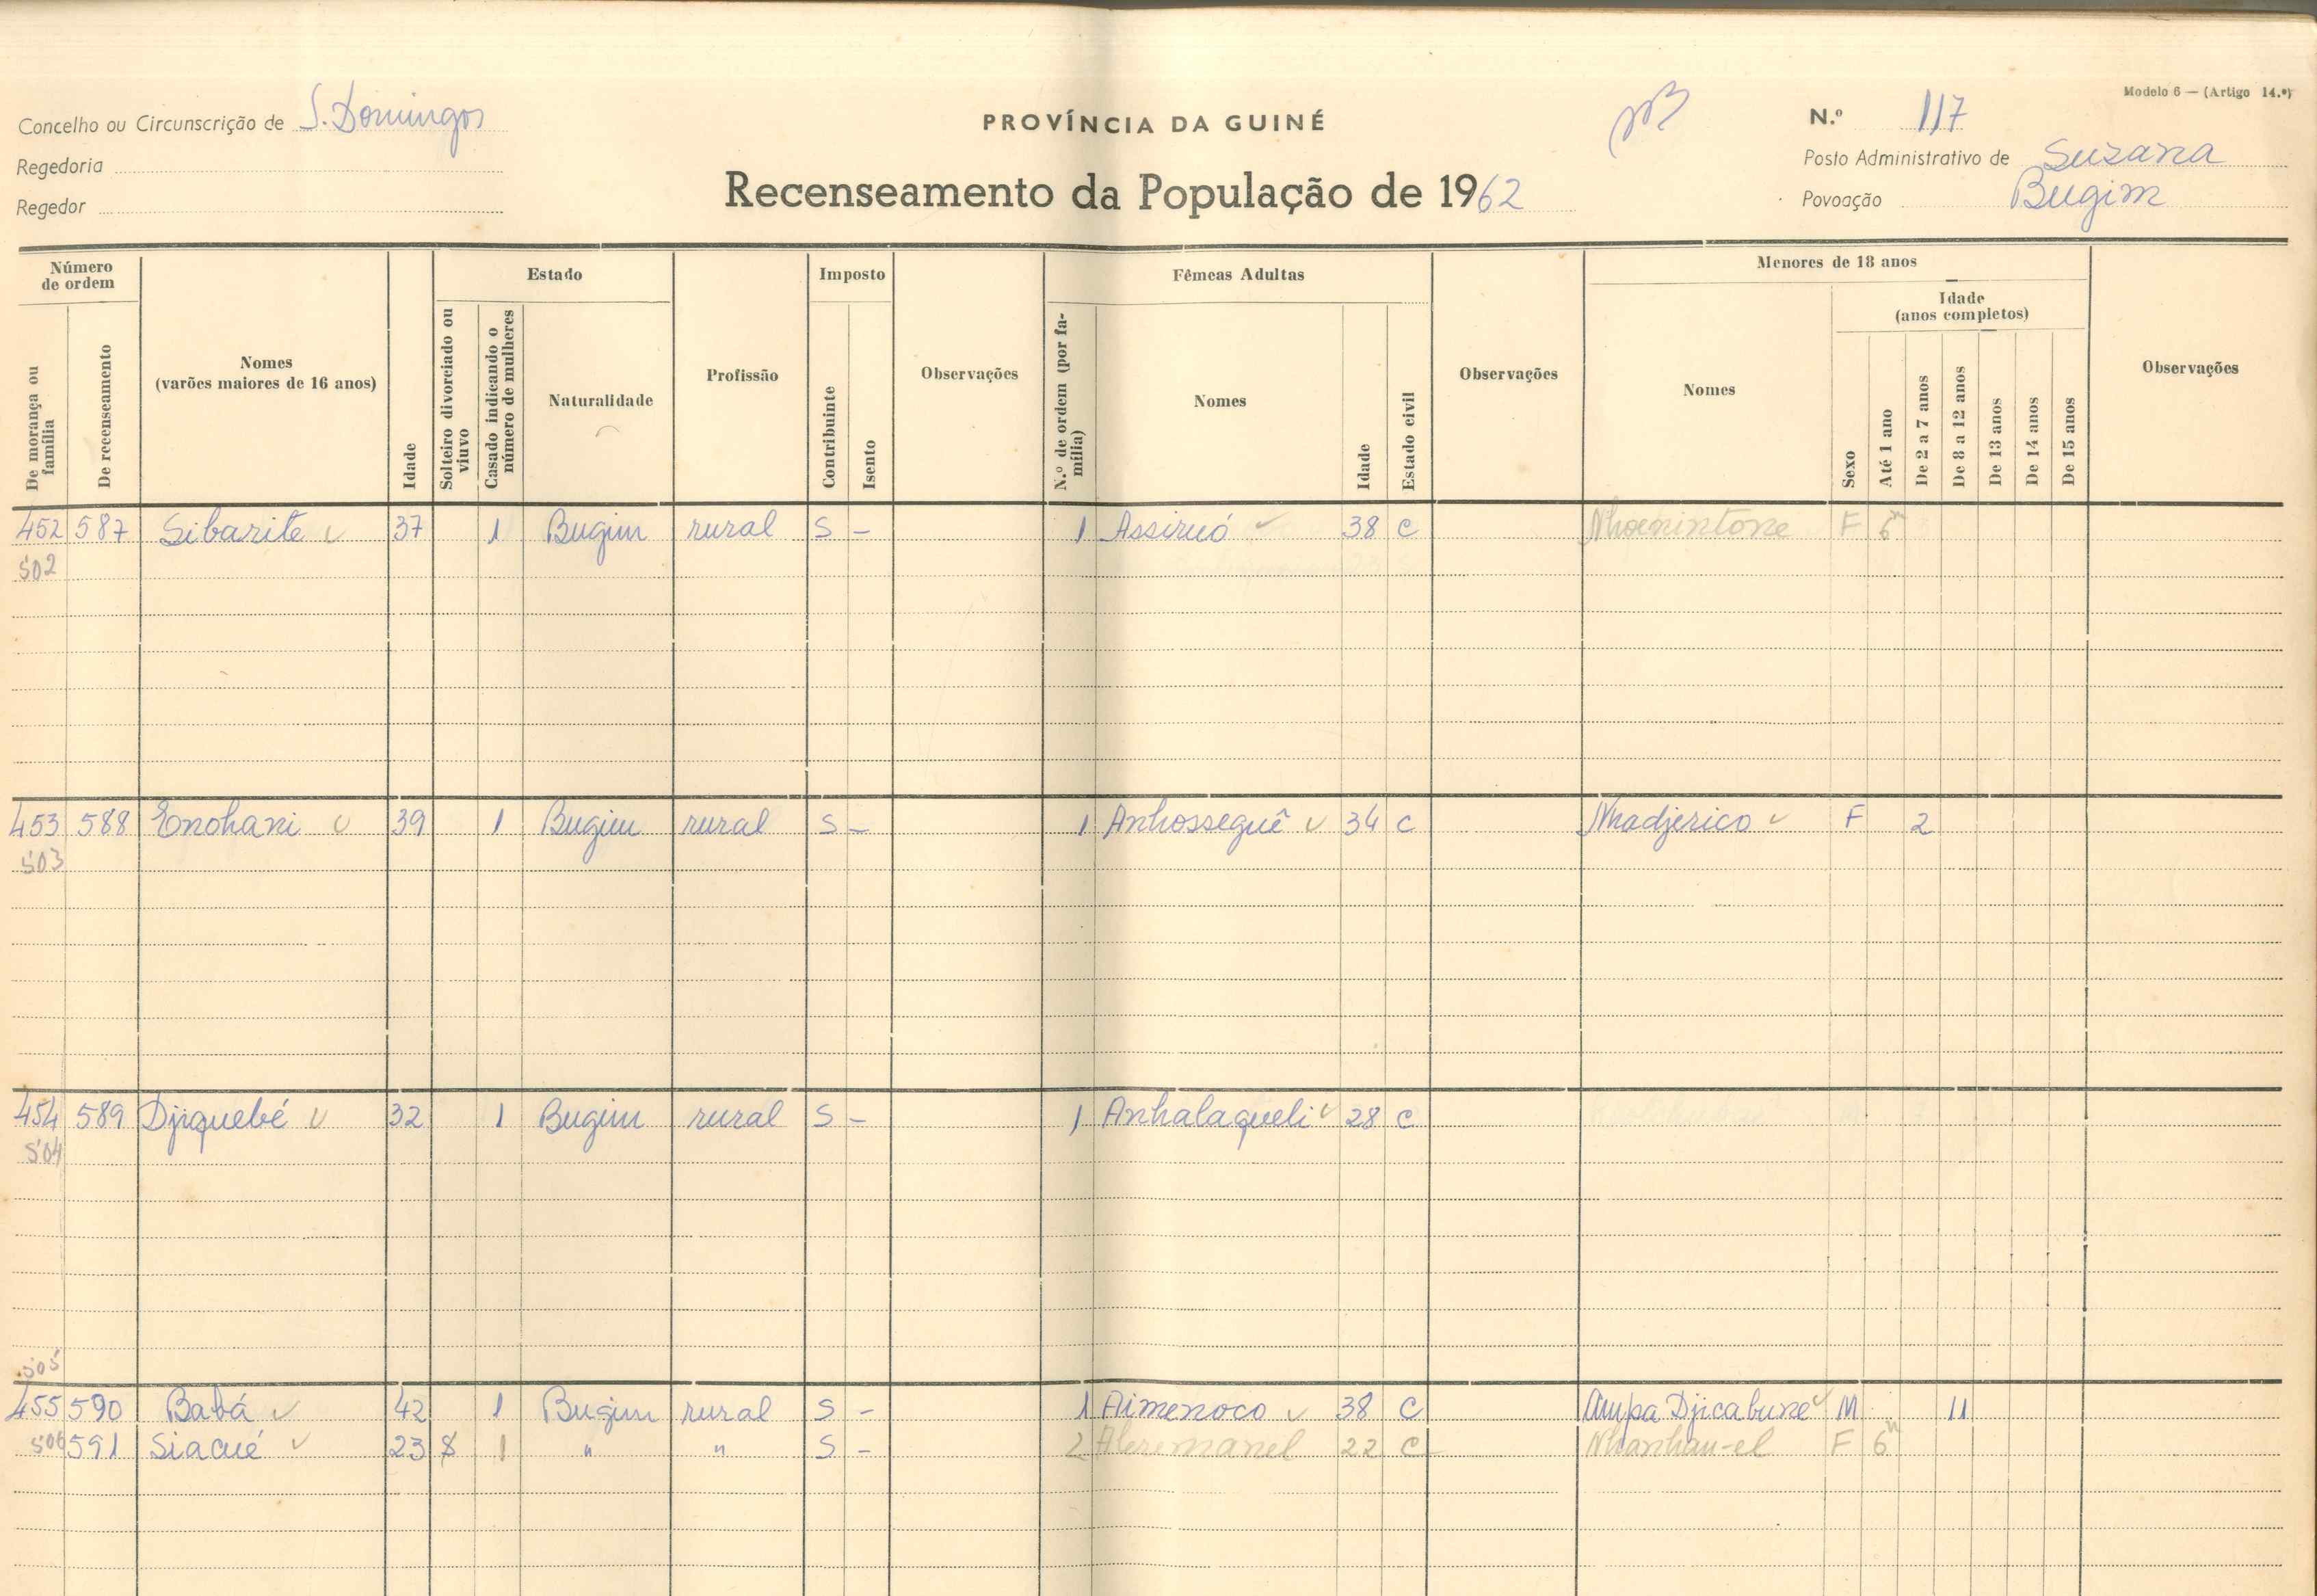 Modelo 6 — (Artigo 14.º)
Concelho ou Circunscrição de S. Domingos
PROVÍNCIA DA GUINÉ
N.º 117
Regedoria
Posto Administrativo de Suzana
Regedor
Recenseamento da População de 1962
Povoação Bugim
Número de ordem
Estado
Imposto
Fêmeas Adultas
Menores de 18 anos
Idade (anos completos)
De morança ou família
De recenseamento
Nomes (varões maiores de 16 anos)
Idade
Solteiro divorciado ou viuvo
Casado indicando o número de mulheres
Naturalidade
Profissão
Contribuinte
Isento
Observações
N.º de ordem (por família)
Nomes
Idade
Estado civil
Observações
Nomes
Sexo
Até 1 ano
De 2 a 7 anos
De 8 a 12 anos
De 13 anos
De 14 anos
De 15 anos
Observações
452 587 Sibarite 37 1 Bugim rural S - 1 Assiruó 38 C F 6m
502
453 588 Enohani 39 1 Bugim rural S - 1 Anhosseguê 34 C Nhadjerico F 2
503
454 589 Djiquebé 32 1 Bugim rural S - 1 Anhalaqueli 28 C
504
505
455 590 Babá 42 1 Bugim rural S - 1 Aimenoco 38 C Ampa Djicabune M 11
506 591 Siacué 23 1 " " S - 2 22 C Nhanhau-el F 6m